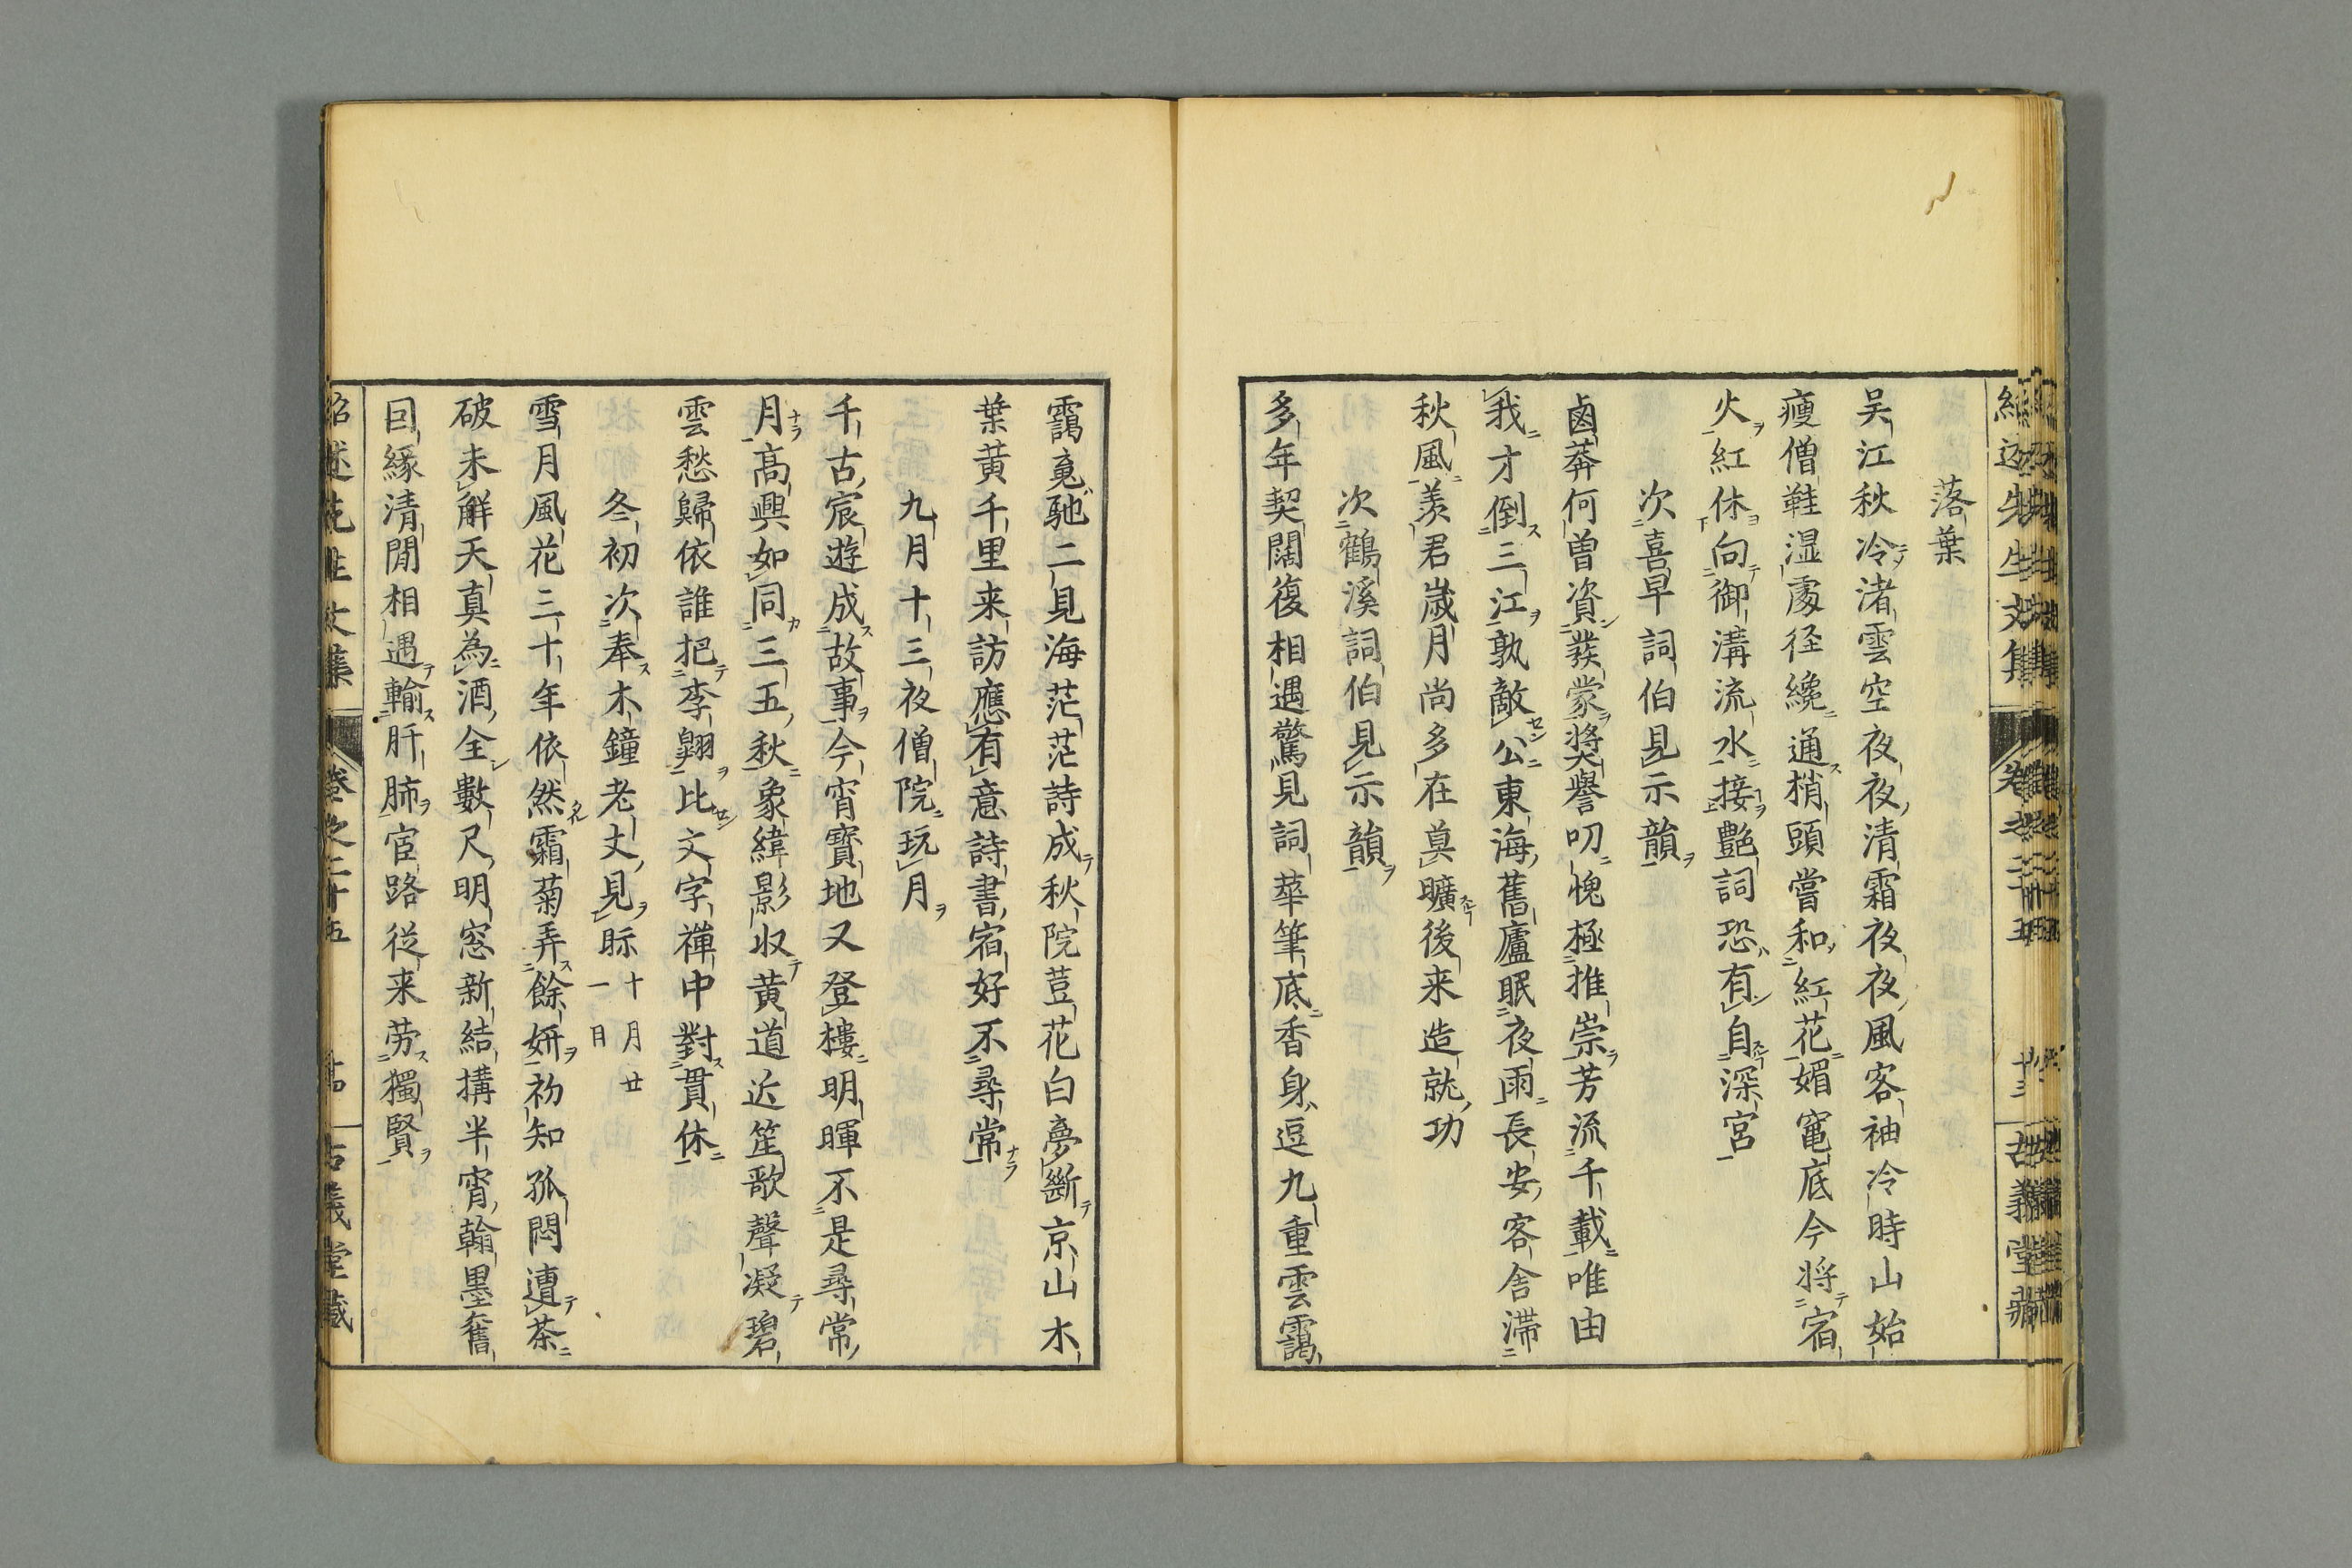 落葉
吴江秋冷渚雲空夜夜清霜夜夜風客袖冷時山始
瘦僧鞋湿處径纔通梢頭嘗和紅花媚窗底今將宿
火紅休向御溝流水接艶詞恐有自深宮
次喜早詞伯見示韻
鹵莽何曽資發蒙奬譽叨愧極推崇芳流千載唯由
我才倒三江孰敵公東海舊廬眠夜雨長安客舎滞
秋風羨君歳月尚多在莫曠後来造就功
次鶴溪詞伯見示韻
多年契闊復相遇驚見詞華筆底香身逗九重雲靄
靄䰟馳二見海茫茫詩成秋院荳花白夢斷京山木
葉黄千里来訪應有意詩書宿好不尋常
九月十三夜僧院玩月
千古宸遊成故事今宵寶地又登樓明暉不是尋常
月高興如同三五秋象緯影収黄道近笙歌聲凝碧
雲愁歸依誰把李翺比文字禪中對貫休
冬初次奉木鐘老丈見眎 十月廿一日
雪月風花三十年依然霜菊弄餘妍礽知孤悶遭茶
破未觧天真為酒全數尺明窓新結搆半宵翰墨奮
囙縁清閒相遇輸肝肺宦路従来労獨賢
紹述先生文集 卷之二十五 古義堂藏